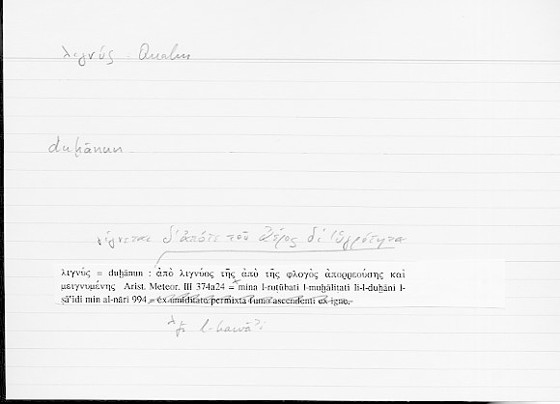 λιγνύς - Qualm
duḫānun
γίγνεται δ' ἀπό τε τοῦ ἀέρος δι' ὑγρότητα
λιγνύς = duḫānun : ἀπὸ λιγνύος τῆς ἀπὸ τῆς φλογὸς ἀπορρεούσης καὶ
μειγνυμένης Arist. Meteor. III 374a24 = mina l-rutūbati l-muḫālitati li-l-duḫāni l-
ṣāʿidi min al-nāri 994 = ex umiditate permixta fumo ascendenti ex igne.
l-hawāʾi